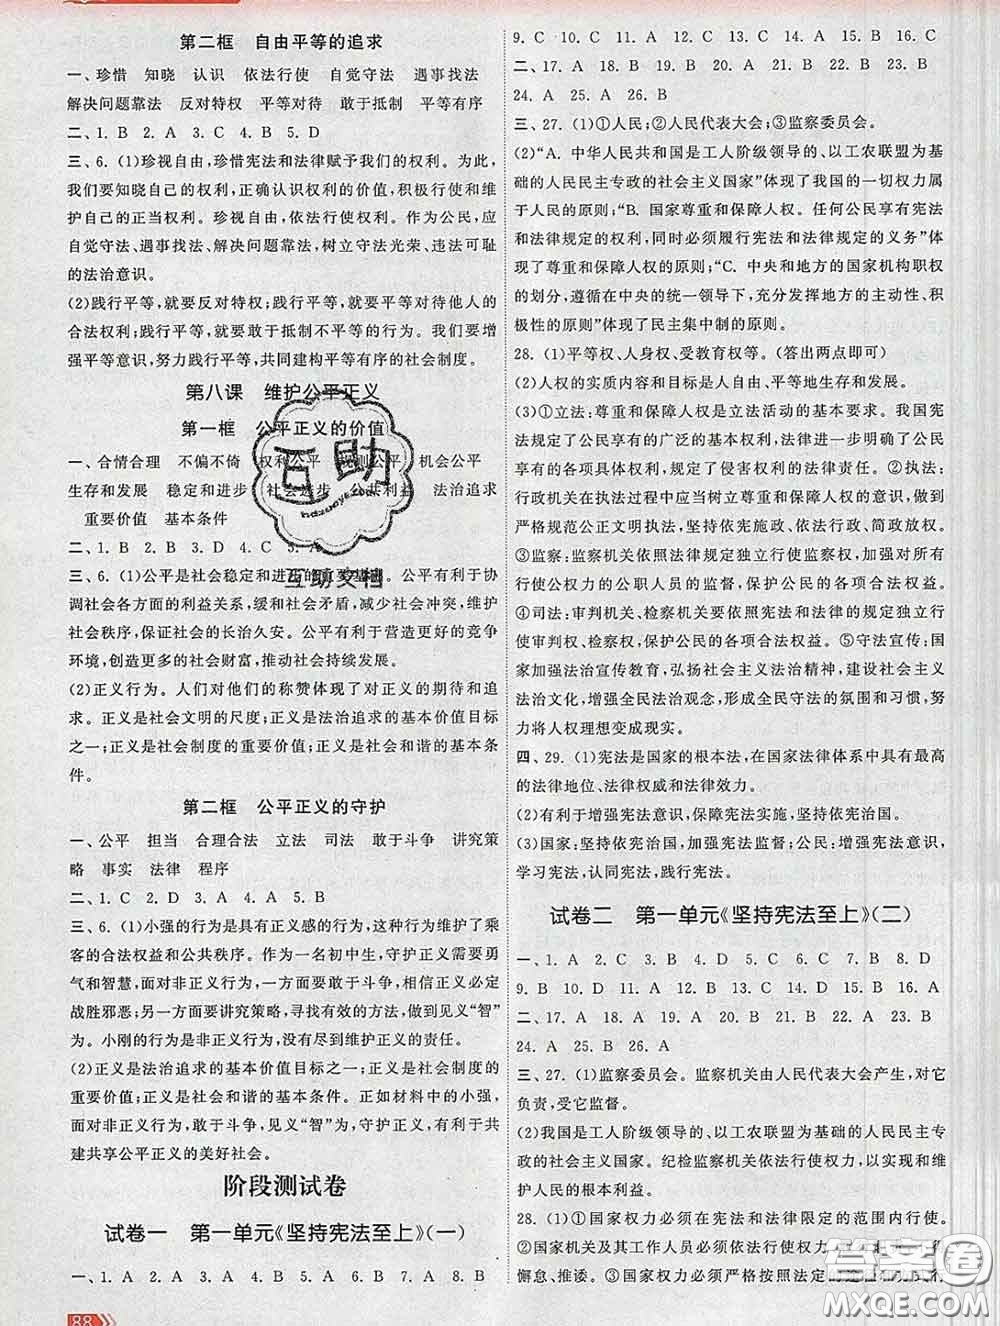 第二框　自由平等的追求
一、珍惜　知晓　认识　依法行使　自觉守法　遇事找法
解决问题靠法　反对特权　平等对待　敢于抵制　平等有序
二、1. B　2. A　3. C　4. C　5. D
三、6. (1)珍视自由，珍惜宪法和法律赋予我们的权利。为此，
我们要知晓自己的权利，正确认识权利的价值，积极行使和维
护自己的正当权利。珍视自由，依法行使权利。作为公民，应
自觉守法、遇事找法、解决问题靠法，树立守法光荣、违法可耻
的法治意识。
(2)践行平等，就要反对特权；践行平等，就要平等对待他人的
合法权利；践行平等，就要敢于抵制不平等的行为。我们要增
强平等意识，努力践行平等，共同建构平等有序的社会制度。
第八课　维护公平正义
第一框　公平正义的价值
一、合情合理　不偏不倚　权利公平　规则公平　机会公平
生存和发展　稳定和进步　社会进步　公共利益　法治追求
重要价值　基本条件
二、1. B　2. B　3. C　4. C　5. A
三、6. (1)公平是社会稳定和进步的重要基础。公平有利于协
调社会各方面的利益关系，缓和社会矛盾，减少社会冲突，维护
社会秩序，保证社会的长治久安。公平有利于营造更好的竞争
环境，创造更多的社会财富，推动社会持续发展。
(2)正义行为。人们对他们的称赞体现了对正义的期待和追
求。正义是社会文明的尺度；正义是法治追求的基本价值目标
之一；正义是社会制度的重要价值；正义是社会和谐的基本条
件。
第二框　公平正义的守护
一、公平　担当　合理合法　立法　司法　敢于斗争　讲究策
略　事实　法律　程序
二、1. C　2. D　3. A　4. A　5. B
三、6. (1)小强的行为是具有正义感的行为，这种行为维护了他
人的合法权益和公共秩序。作为一名初中生，守护正义需要勇
气和智慧，面对非正义行为，一方面要敢于斗争，相信正义必定
战胜邪恶；另一方面要讲究策略，寻找有效的方法，做到见义“智”
为。小刚的行为是非正义行为，没有尽到守护正义的责任。
(2)正义是法治追求的基本价值目标之一；正义是社会制度的
重要价值；正义是社会和谐的基本条件。正如材料中的小强，
面对非正义行为，敢于斗争，见义“智”为，守护正义，有利于共
建共享公平正义的美好社会。
阶段测试卷
试卷一　第一单元《坚持宪法至上》(一)
一、1. A　2. A　3. A　4. B　5. B　6. B　7. A　8. B
88
9. C　10. C　11. D　12. C　13. C　14. B　15. B　16. C
二、17. A　18. A　19. B　20. A　21. B　22. B　23. B
24. A　25. A　26. B
三、27. (1)①人民；②人民代表大会；③监察委员会。
(2)“A. 中华人民共和国是工人阶级领导的、以工农联盟为基
础的人民民主专政的社会主义国家”体现了我国的一切权力属
于人民的原则；“B. 国家尊重和保障人权。任何公民享有宪法
和法律规定的权利，同时必须履行宪法和法律规定的义务”体
现了尊重和保障人权的原则；“C. 中央和地方的国家机构职权
的划分，遵循在中央的统一领导下，充分发挥地方的主动性、积
极性的原则”体现了民主集中制的原则。
28. (1)平等权、人身权、受教育权等。(答出两点即可)
(2)人权的实质内容和目标是人自由、平等地生存和发展。
(3)①立法：尊重和保障人权是立法活动的基本要求。我国宪
法规定了公民享有的广泛的基本权利，法律进一步明确了公民
享有的各项具体权利，规定了侵害权利的法律责任。②执法：
行政机关在执法过程中应当树立尊重和保障人权的意识，做到
严格规范公正文明执法，坚持依宪施政、依法行政、简政放权。
③监察：监察机关依照法律规定独立行使监察权，对所有行
使公权力的公职人员的监督，保护公民的各项合法权益。
④司法：审判机关、检察机关要依照宪法和法律的规定独立行
使审判权、检察权，保护公民的各项合法权益。⑤守法宣传：国
家加强法治宣传教育，弘扬社会主义法治精神，建设社会主义
法治文化，增强全民法治观念，形成全民守法的氛围和习惯，努
力将人权理想变成现实。
四、29. (1)宪法是国家的根本法，在国家法律体系中具有最高
的法律地位、法律权威和法律效力。
(2)有利于增强宪法意识，保障宪法实施，坚持依宪治国。
(3)国家：坚持依宪治国，加强宪法监督；公民：增强宪法意识，
学习宪法，认同宪法，践行宪法。
试卷二　第一单元《坚持宪法至上》(二)
一、1. A　2. C　3. B　4. D　5. C　6. D　7. B　8. D
9. B　10. D　11. A　12. B　13. D　14. B　15. C　16. A
二、17. A　18. A　19. A　20. B　21. A　22. A　23. B
24. A　25. B　26. A
三、27. (1)监察委员会。监察机关由人民代表大会产生，对它
负责，受它监督。
(2)我国是工人阶级领导的、以工农联盟为基础的人民民主专
政的社会主义国家。纪检监察机关依法行使权力，有利于维
护人民的根本利益。
28. (1)①国家权力必须在宪法和法律限定的范围内行使。
②国家机关及其工作人员必须依法行使权力、
懈怠、推诿。③国家权力必须严格按照法定的途径和方式行
互助
hdzuoye.com
互助文档
答案圈
MXQE.COM